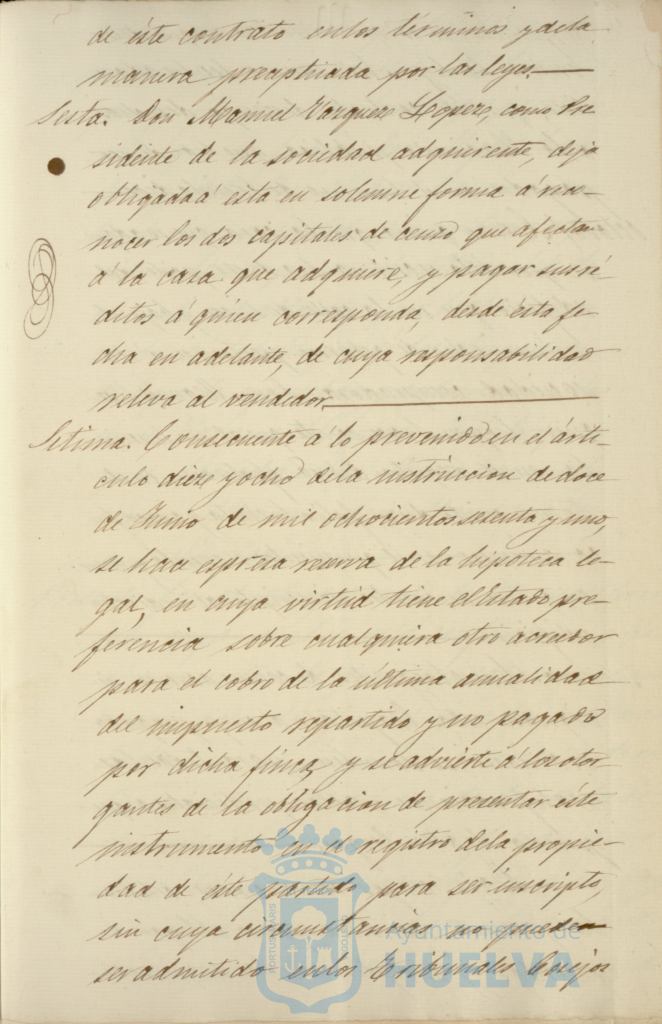 de éste contrato enlos términos y dela
manera preceptuada por las leyes.
Sesta. Don Manuel Vazquez Lopez, como Pre
sidente de la sociedad adquirente, deja
obligada á esta en solemne forma á reco-
nocer los dos capitales de censo que afectan
á la casa que adquiere, y pagar sus ré
ditos á quien corresponda, desde ésta fe
cha en adelante, de cuya responsabilidad
releva al vendedor.
Sétima. Consecuente á lo prevenido en el árti-
culo diez y ocho dela instruccion de doce
de Junio de mil ochocientos sesenta y uno,
se hace espresa reserva de la hipoteca le-
gal, en cuya virtud tiene el Estado pre-
ferencia sobre cualquiera otro acreedor
para el cobro de la última anualidad
del impuesto repartido y no pagado
por dicha finca, y se advierte á los otor
gantes de la obligacion de presentar éste
instrumento en el registro dela propie-
dad de éste partido para ser inscripto,
sin cuya circunstancias no pueden
ser admitido enlos Tribunales Consejos
PORTUS MARIS
Ayuntamiento de
HUELVA